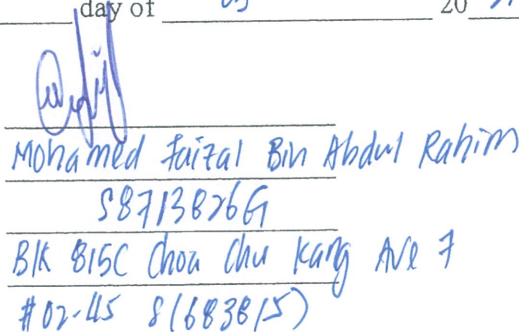 day of 05 20
Mohamed Faizal Bin Abdul Rahim
S8713826G
Blk 815C Choa Chu Kang Ave 7
#02-45 S(683815)